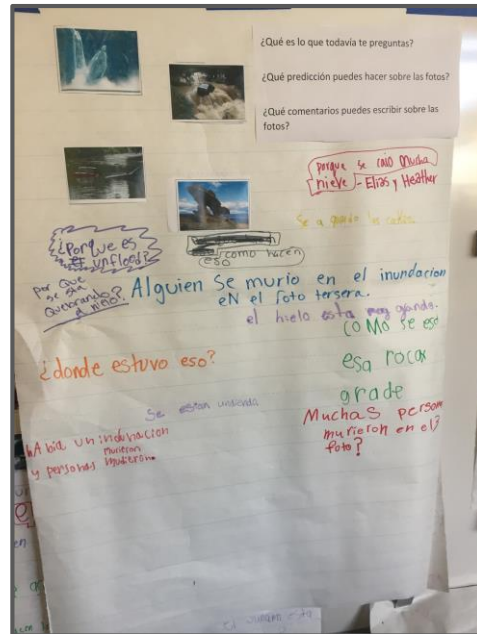 ¿Qué es lo que todavía te preguntas?
¿Qué predicción puedes hacer sobre las fotos?
¿Qué comentarios puedes escribir sobre las
fotos?
porque se caio mucha
nieve - Elias y Heather
Se a
¿Porque es
un flood?
como hacen
eso
por que
se sta
quebrando
el hielo?
Alguien se murio en el inundacion
eN el foto tersera.
el hielo esta muy grande.
¿donde estuvo eso?
COMO se eso
esa roca
grade
Se estan undiendo
hAbia un indunacion
murieron
y personas
Muchas person
murieron en el
foto?